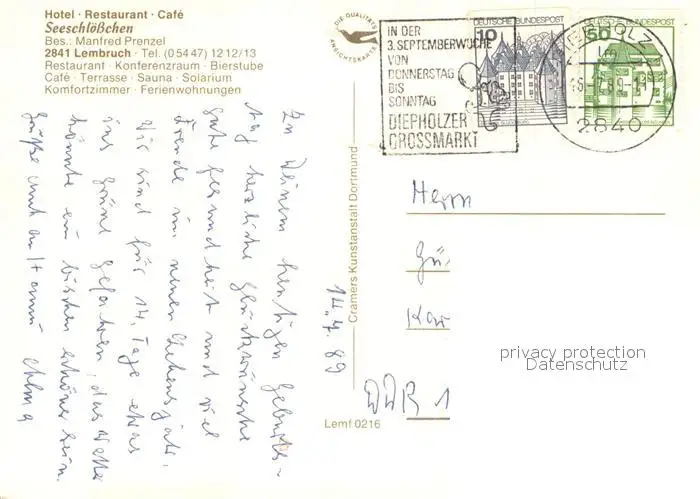 Hotel · Restaurant · Café
Seeschlößchen
Bes.: Manfred Prenzel
2841 Lembruch · Tel. (0 54 47) 12 12/13
Restaurant · Konferenzraum · Bierstube
Café · Terrasse · Sauna · Solarium
Komfortzimmer · Ferienwohnungen
DIE QUALITÄTS
ANSICHTSKARTE
IN DER
3. SEPTEMBERWOCHE
VON
DONNERSTAG
BIS
SONNTAG
DIEPHOLZER
GROSSMARKT
DEUTSCHE BUNDESPOST
10
DEUTSCHE BUNDESPOST
50
DIEPHOLZ
1m
2840
14.7.89
Zu Deinem heutigen Geburts-
tag herzliche Glückwünsche
gute Gesundheit und viel
Freude im neuen Lebensjahr.
Wir sind für 14 Tage etwas
ins Grüne gefahren, das Wetter
könnte ein bischen schöner sein.
Grüße
Cramers Kunstanstalt Dortmund
Lemf 0216
Herrn
Gü.
DDR 1
privacy protection
Datenschutz